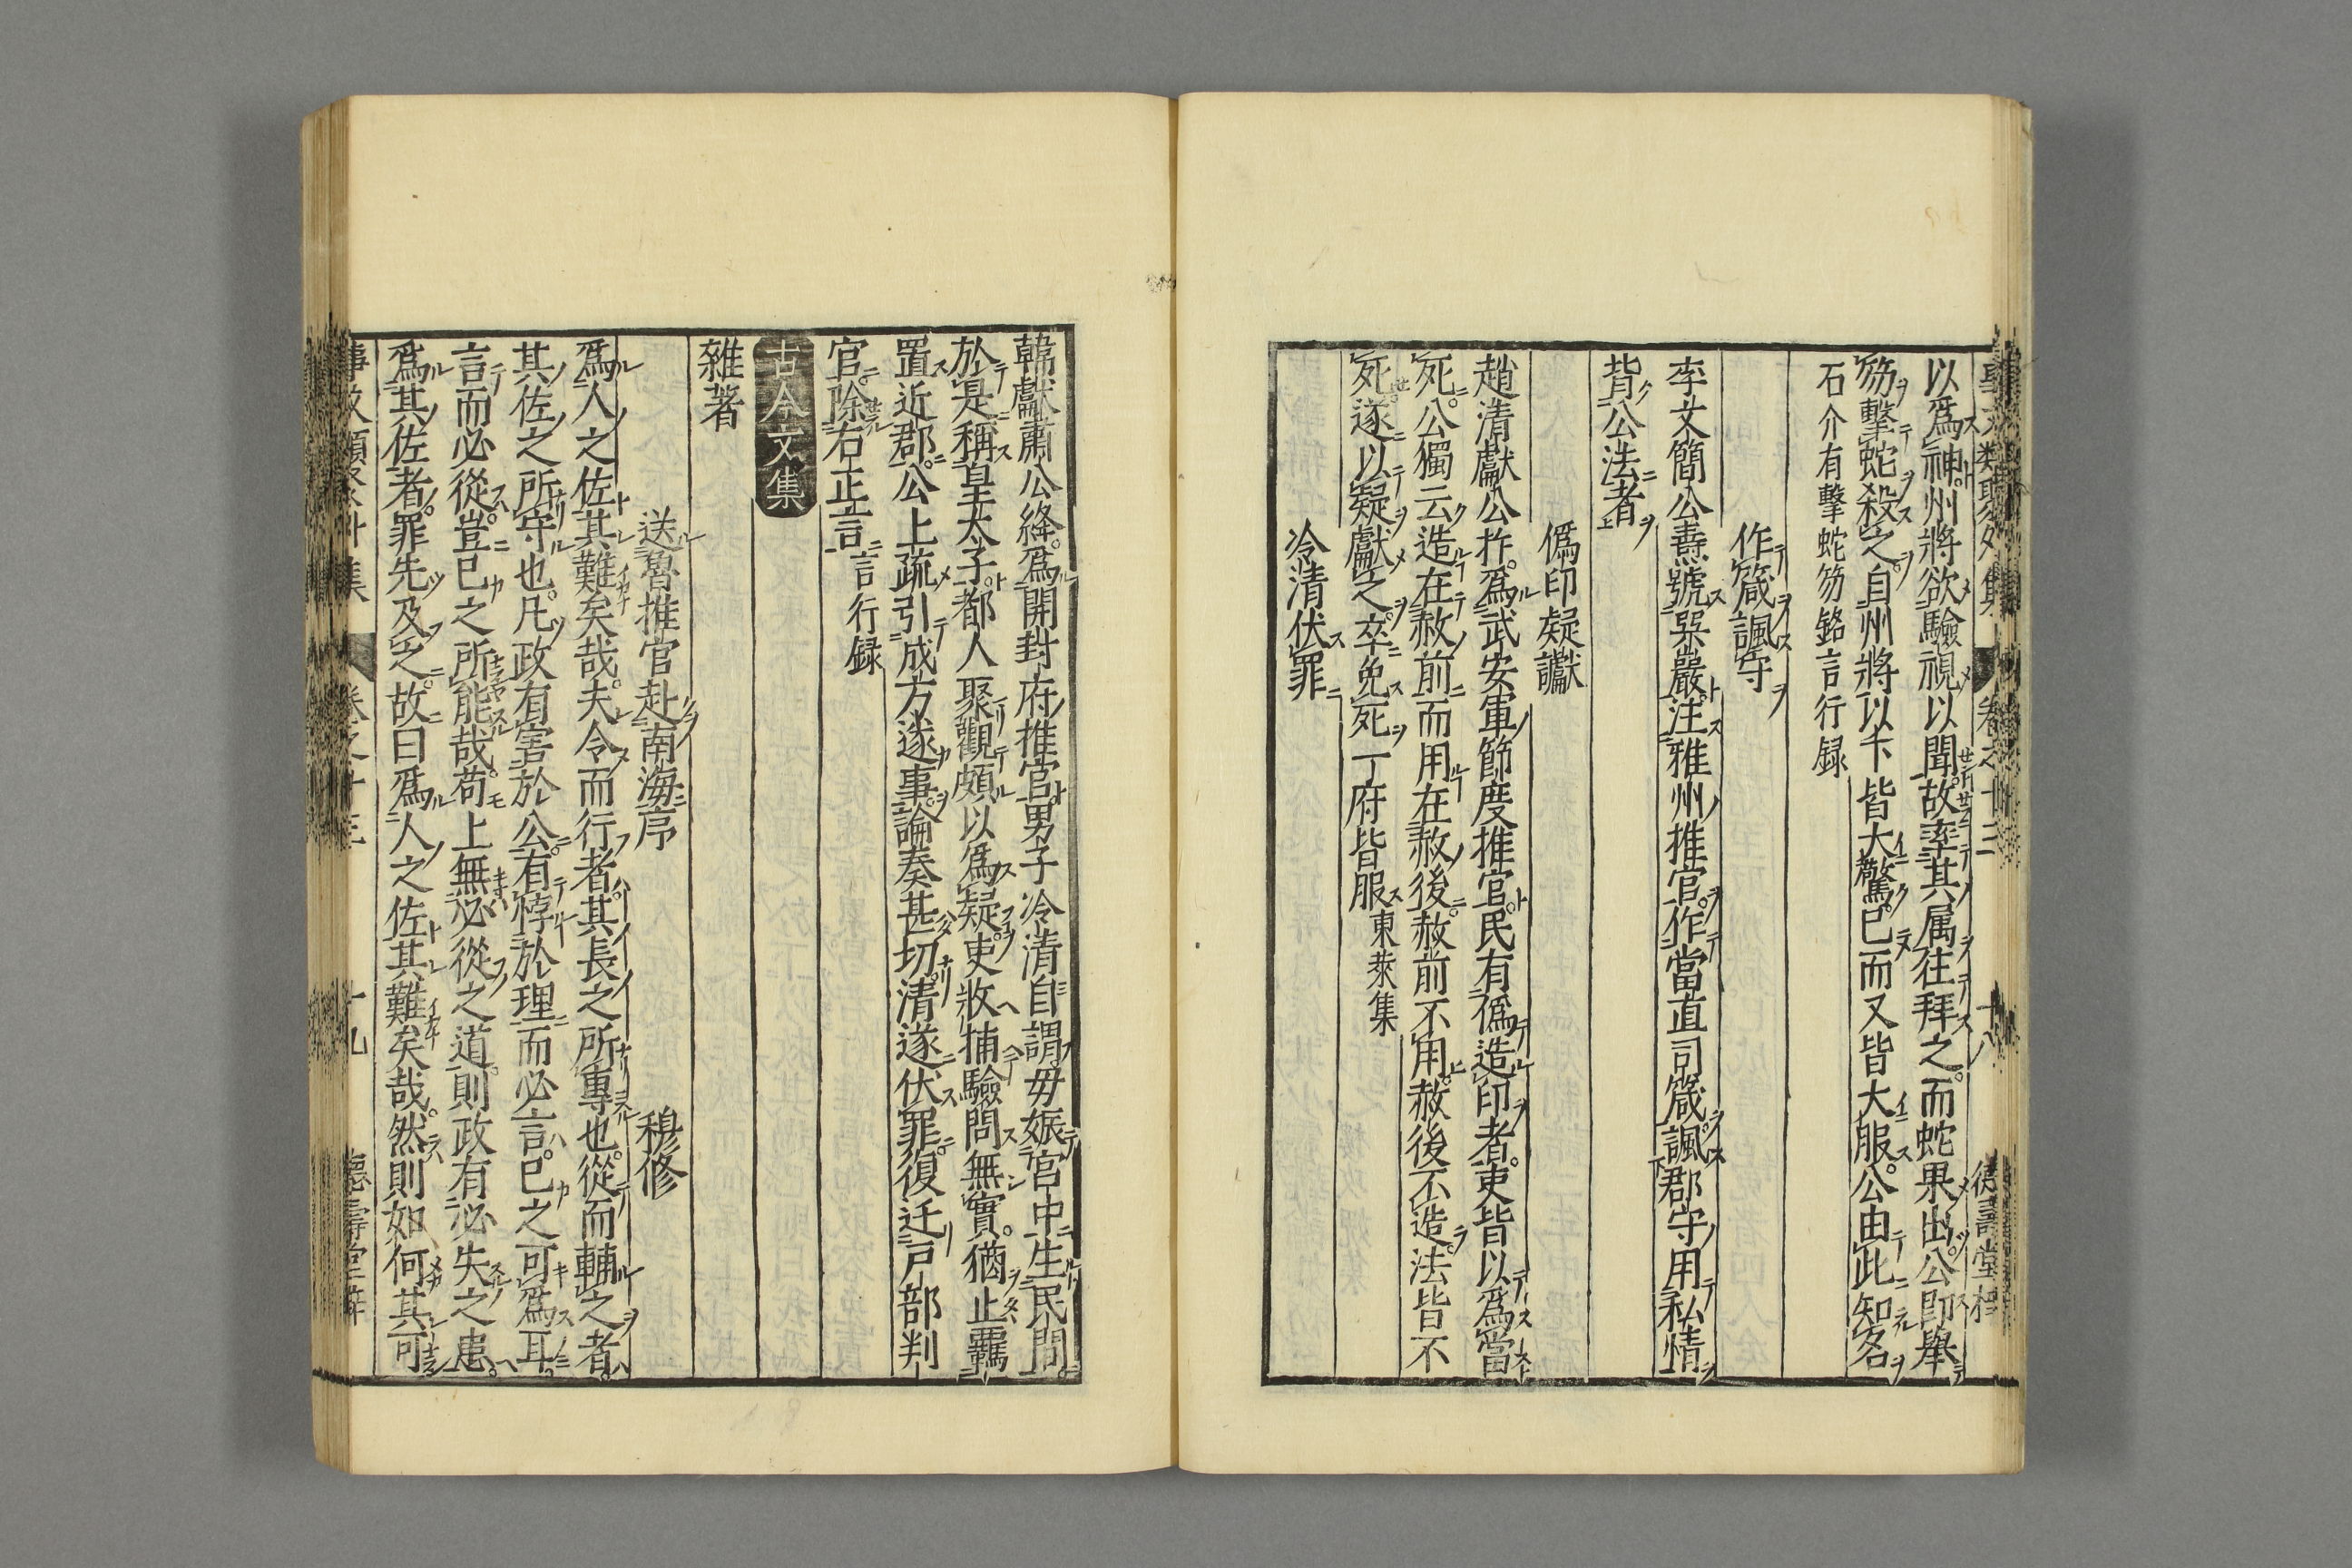 以爲神州將欲驗視以聞故率其属往拜之而蛇果出公卽舉
笏擊蛇殺之自州將以下皆大驚已而又皆大服公由此知名
石介有擊蛇笏銘言行録
作箴諷守
李文簡公燾號巽巖注雅州推官作當直司箴諷郡守用私情
背公法者
僞印疑讞
趙清獻公抃爲武安軍節度推官民有僞造印者吏皆以爲當
死公獨云造在赦前而用在赦後赦前不用赦後不造法皆不
死遂以疑獻之卒免死一府皆服東萊集
冷清伏罪
韓獻肅公絳爲開封府推官男子冷清自謂毋娠宮中生民間
於是稱皇太子都人聚觀頗以爲疑吏收捕驗問無實猶止覊
置近郡公上疏引成方遂事論奏甚切清遂伏罪復迁戸部判
官除右正言言行録
古今文集
雜著
送魯推官赴南海序 穆修
爲人之佐其難矣哉夫令而行者其長之所專也從而輔之者
其佐之所守也凡政有害於公有悖於理而必言已之可爲耳
言而必從豈已之所能哉苟上無必從之道則政有必失之患
爲其佐者罪先及之故曰爲人之佐其難矣哉然則如何其可